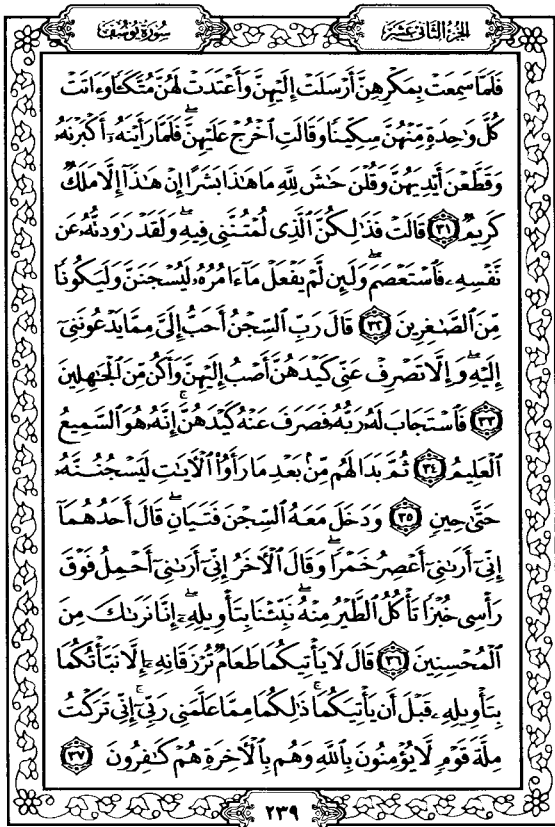 سُورَةُ يُوسُفَ
الجُزْءُ الثَّانِي عَشَر
فَلَمَّا سَمِعَتْ بِمَكْرِهِنَّ أَرْسَلَتْ إِلَيْهِنَّ وَأَعْتَدَتْ لَهُنَّ مُتَّكَـًٔا وَءَاتَتْ
كُلَّ وَٰحِدَةٍ مِّنْهُنَّ سِكِّينًا وَقَالَتِ ٱخْرُجْ عَلَيْهِنَّ ۖ فَلَمَّا رَأَيْنَهُۥٓ أَكْبَرْنَهُۥ
وَقَطَّعْنَ أَيْدِيَهُنَّ وَقُلْنَ حَٰشَ لِلَّهِ مَا هَٰذَا بَشَرًا إِنْ هَٰذَآ إِلَّا مَلَكٌ
كَرِيمٌ ﴿٣١﴾ قَالَتْ فَذَٰلِكُنَّ ٱلَّذِى لُمْتُنَّنِى فِيهِ ۖ وَلَقَدْ رَٰوَدتُّهُۥ عَن
نَّفْسِهِۦ فَٱسْتَعْصَمَ ۖ وَلَئِن لَّمْ يَفْعَلْ مَآ ءَامُرُهُۥ لَيُسْجَنَنَّ وَلَيَكُونًا
مِّنَ ٱلصَّٰغِرِينَ ﴿٣٢﴾ قَالَ رَبِّ ٱلسِّجْنُ أَحَبُّ إِلَىَّ مِمَّا يَدْعُونَنِىٓ
إِلَيْهِ ۖ وَإِلَّا تَصْرِفْ عَنِّى كَيْدَهُنَّ أَصْبُ إِلَيْهِنَّ وَأَكُن مِّنَ ٱلْجَٰهِلِينَ
﴿٣٣﴾ فَٱسْتَجَابَ لَهُۥ رَبُّهُۥ فَصَرَفَ عَنْهُ كَيْدَهُنَّ ۚ إِنَّهُۥ هُوَ ٱلسَّمِيعُ
ٱلْعَلِيمُ ﴿٣٤﴾ ثُمَّ بَدَا لَهُم مِّنۢ بَعْدِ مَا رَأَوُا۟ ٱلْـَٔايَٰتِ لَيَسْجُنُنَّهُۥ
حَتَّىٰ حِينٍ ﴿٣٥﴾ وَدَخَلَ مَعَهُ ٱلسِّجْنَ فَتَيَانِ ۖ قَالَ أَحَدُهُمَآ
إِنِّىٓ أَرَىٰنِىٓ أَعْصِرُ خَمْرًا ۖ وَقَالَ ٱلْـَٔاخَرُ إِنِّىٓ أَرَىٰنِىٓ أَحْمِلُ فَوْقَ
رَأْسِى خُبْزًا تَأْكُلُ ٱلطَّيْرُ مِنْهُ ۖ نَبِّئْنَا بِتَأْوِيلِهِۦٓ ۖ إِنَّا نَرَىٰكَ مِنَ
ٱلْمُحْسِنِينَ ﴿٣٦﴾ قَالَ لَا يَأْتِيكُمَا طَعَامٌ تُرْزَقَانِهِۦٓ إِلَّا نَبَّأْتُكُمَا
بِتَأْوِيلِهِۦ قَبْلَ أَن يَأْتِيَكُمَا ۚ ذَٰلِكُمَا مِمَّا عَلَّمَنِى رَبِّىٓ ۚ إِنِّى تَرَكْتُ
مِلَّةَ قَوْمٍ لَّا يُؤْمِنُونَ بِٱللَّهِ وَهُم بِٱلْـَٔاخِرَةِ هُمْ كَٰفِرُونَ ﴿٣٧﴾
٢٣٩